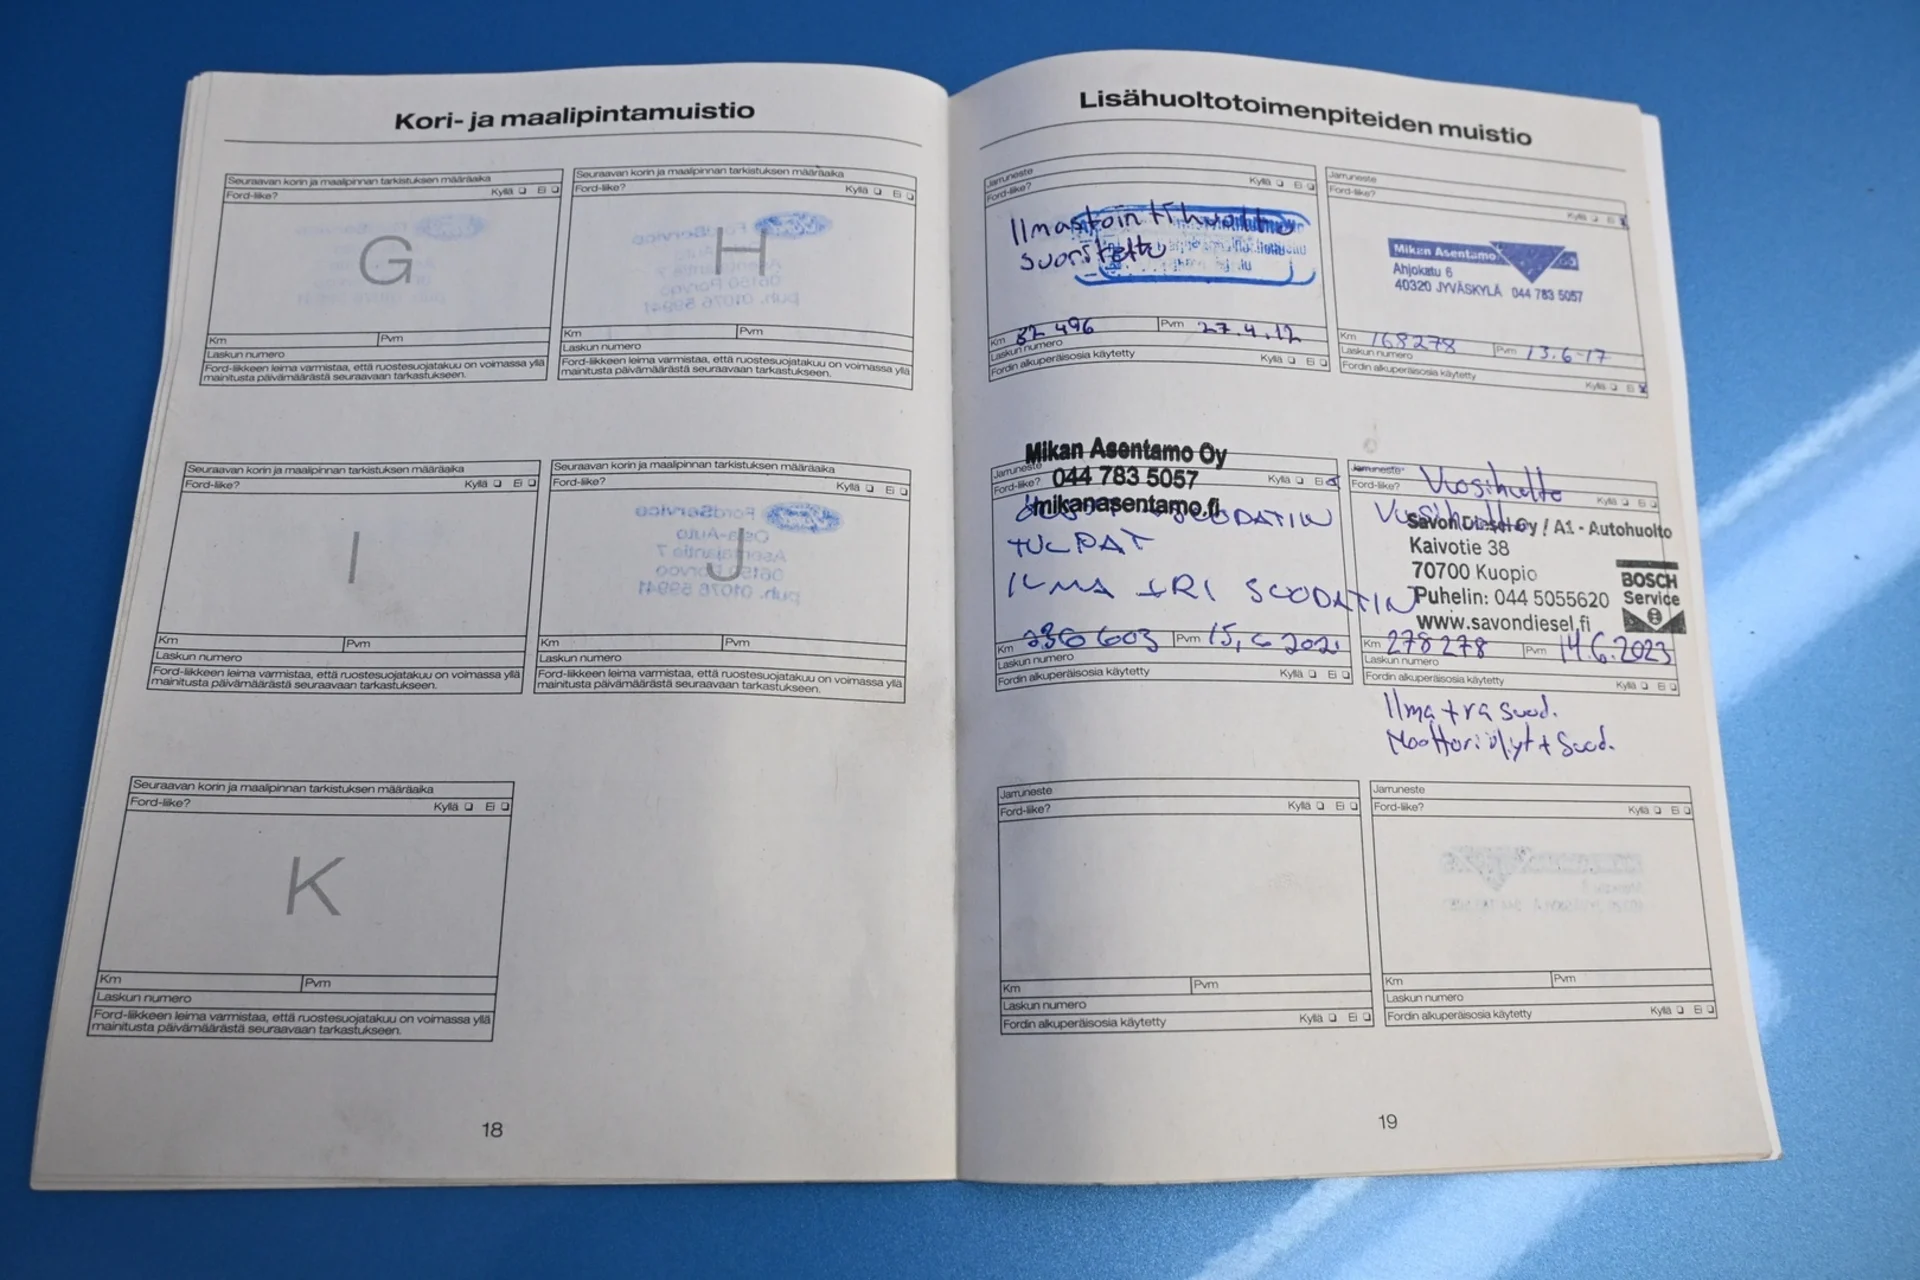 Kori- ja maalipintamuistio
Seuraavan korin ja maalipinnan tarkistuksen määräaika
Ford-liike? Kyllä Ei
G
Km Pvm
Laskun numero
Ford-liikkeen leima varmistaa, että ruostesuojatakuu on voimassa yllä
mainitusta päivämäärästä seuraavaan tarkastukseen.
Seuraavan korin ja maalipinnan tarkistuksen määräaika
Ford-liike? Kyllä Ei
H
Km Pvm
Laskun numero
Ford-liikkeen leima varmistaa, että ruostesuojatakuu on voimassa yllä
mainitusta päivämäärästä seuraavaan tarkastukseen.
Seuraavan korin ja maalipinnan tarkistuksen määräaika
Ford-liike? Kyllä Ei
I
Km Pvm
Laskun numero
Ford-liikkeen leima varmistaa, että ruostesuojatakuu on voimassa yllä
mainitusta päivämäärästä seuraavaan tarkastukseen.
Seuraavan korin ja maalipinnan tarkistuksen määräaika
Ford-liike? Kyllä Ei
J
Km Pvm
Laskun numero
Ford-liikkeen leima varmistaa, että ruostesuojatakuu on voimassa yllä
mainitusta päivämäärästä seuraavaan tarkastukseen.
Seuraavan korin ja maalipinnan tarkistuksen määräaika
Ford-liike? Kyllä Ei
K
Km Pvm
Laskun numero
Ford-liikkeen leima varmistaa, että ruostesuojatakuu on voimassa yllä
mainitusta päivämäärästä seuraavaan tarkastukseen.
18
Lisähuoltotoimenpiteiden muistio
Jarruneste
Ford-liike? Kyllä Ei
Ilmastointihuolto
suoritettu
Km 82 496 Pvm 27.4.12
Laskun numero
Fordin alkuperäisosia käytetty Kyllä Ei
Jarruneste
Ford-liike? Kyllä Ei
Mikan Asentamo
Ahjokatu 6
40320 JYVÄSKYLÄ 044 783 5057
Km 168278
Laskun numero Pvm 13.6-17
Fordin alkuperäisosia käytetty
Kyllä Ei
Mikan Asentamo Oy
Jarruneste
Ford-liike? 044 783 5057 Kyllä Ei
mikanasentamo.fi
TULPAT
ILMA SUODATIN
Km 236 603 Pvm 15,6 2021
Laskun numero
Fordin alkuperäisosia käytetty Kyllä Ei
Jarruneste Vuosihuolto
Ford-liike? Kyllä Ei
Vuosihuolto
Savon Diesel Oy / A1 - Autohuolto
Kaivotie 38
70700 Kuopio
Puhelin: 044 5055620
www.savondiesel.fi
BOSCH
Service
Km 278278 Pvm 14.6.2023
Laskun numero
Fordin alkuperäisosia käytetty Kyllä Ei
Ilma + ra suod.
Moottoriöljyt + Suod.
Jarruneste
Ford-liike? Kyllä Ei
Km Pvm
Laskun numero
Fordin alkuperäisosia käytetty Kyllä Ei
Jarruneste
Ford-liike? Kyllä Ei
Km Pvm
Laskun numero
Fordin alkuperäisosia käytetty Kyllä Ei
19